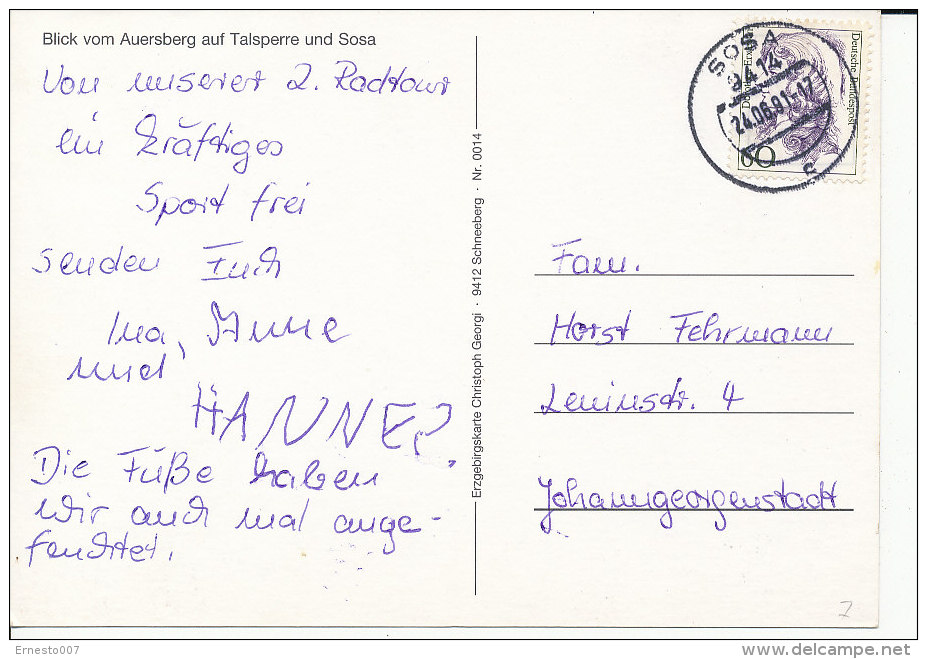 Blick vom Auersberg auf Talsperre und Sosa
Von unserer 2. Radtour
ein kräftiges
Sport frei
senden Euch
Ina, Anne
und
HANNES
Die Füße haben
wir auch mal ange-
feuchtet.
Erzgebirgskarte Christoph Georgi · 9412 Schneeberg · Nr. 0014
SOSA
9414
24.06.91-17
Deutsche Bundespost
60
Fam.
Horst Fehrmann
Leninstr. 4
Johanngeorgenstadt
Ernesto007
delcampe.net